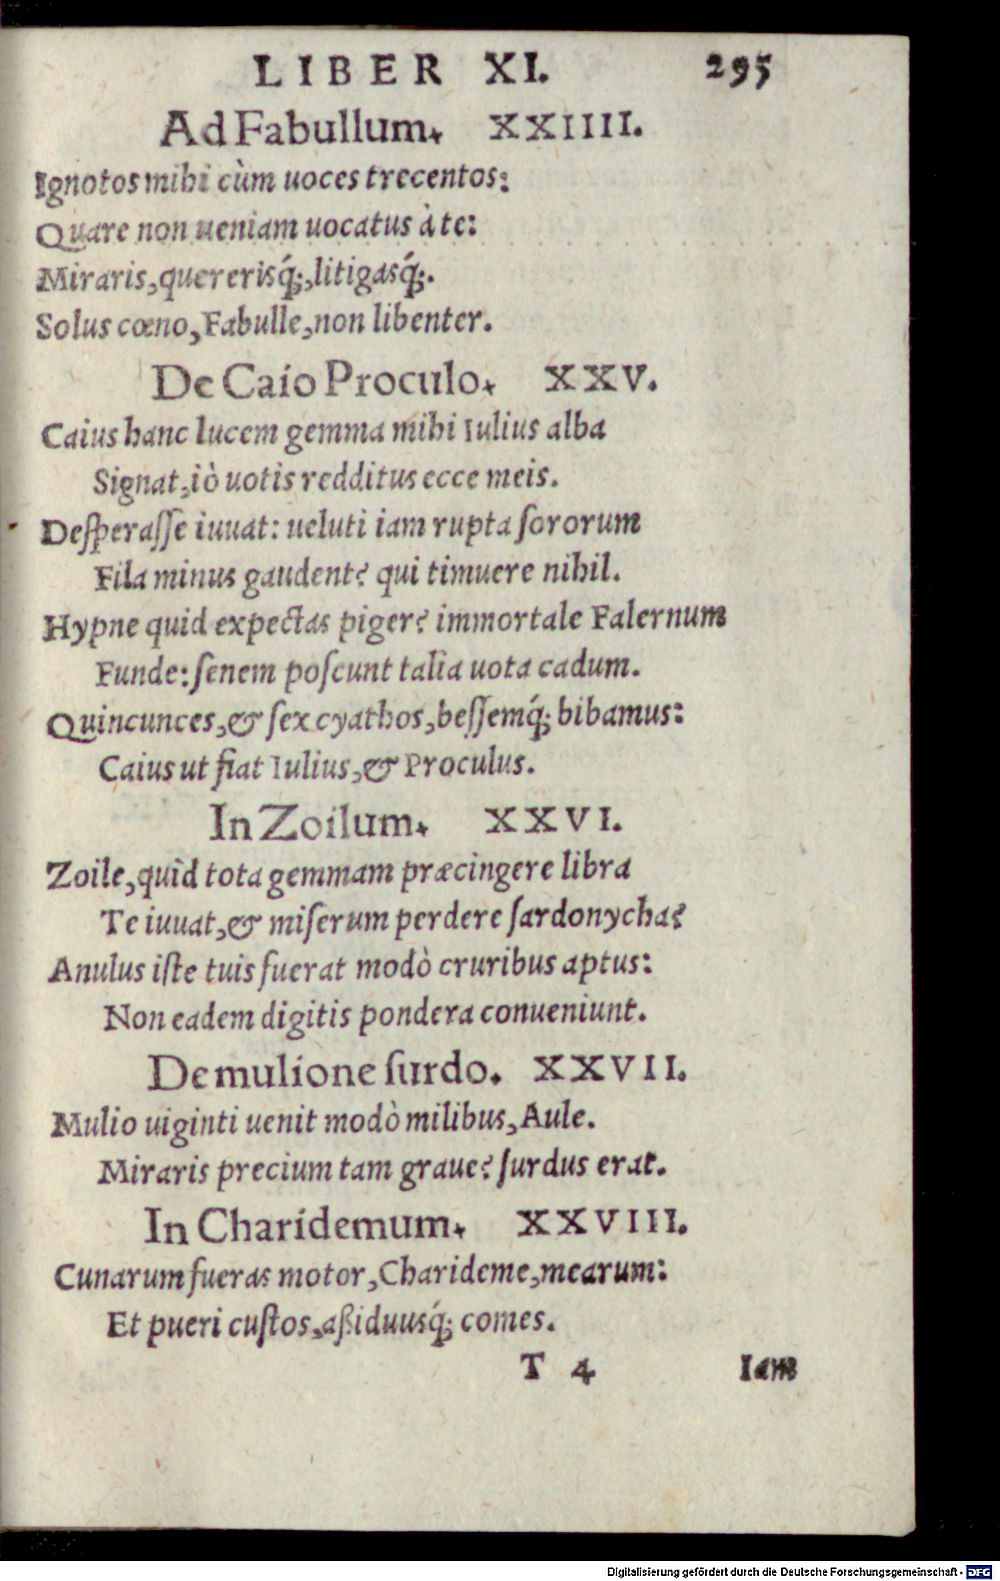 LIBER XI. 295
Ad Fabullum. XXIIII.
Ignotos mihi cùm uoces trecentos:
Quare non ueniam uocatus à te:
Miraris, quererisq́;, litigasq́;.
Solus cœno, Fabulle, non libenter.
De Caio Proculo. XXV.
Caius hanc lucem gemma mihi Iulius alba
Signat, iò uotis redditus ecce meis.
Desperaſſe iuuat: ueluti iam rupta ſororum
Fila minus gaudent? qui timuere nihil.
Hypne quid expectas piger? immortale Falernum
Funde: ſenem poſcunt talia uota cadum.
Quincunces, & ſex cyathos, beſſemq́; bibamus:
Caius ut fiat Iulius, & Proculus.
In Zoilum. XXVI.
Zoile, quid tota gemmam præcingere libra
Te iuuat, & miſerum perdere ſardonycha?
Anulus iſte tuis fuerat modò cruribus aptus:
Non eadem digitis pondera conueniunt.
De mulione ſurdo. XXVII.
Mulio uiginti uenit modò milibus, Aule.
Miraris precium tam graue? ſurdus erat.
In Charidemum. XXVIII.
Cunarum fueras motor, Charideme, mearum:
Et pueri cuſtos, aßiduusq́; comes.
T 4 Iam
Digitalisierung gefördert durch die Deutsche Forschungsgemeinschaft - DFG